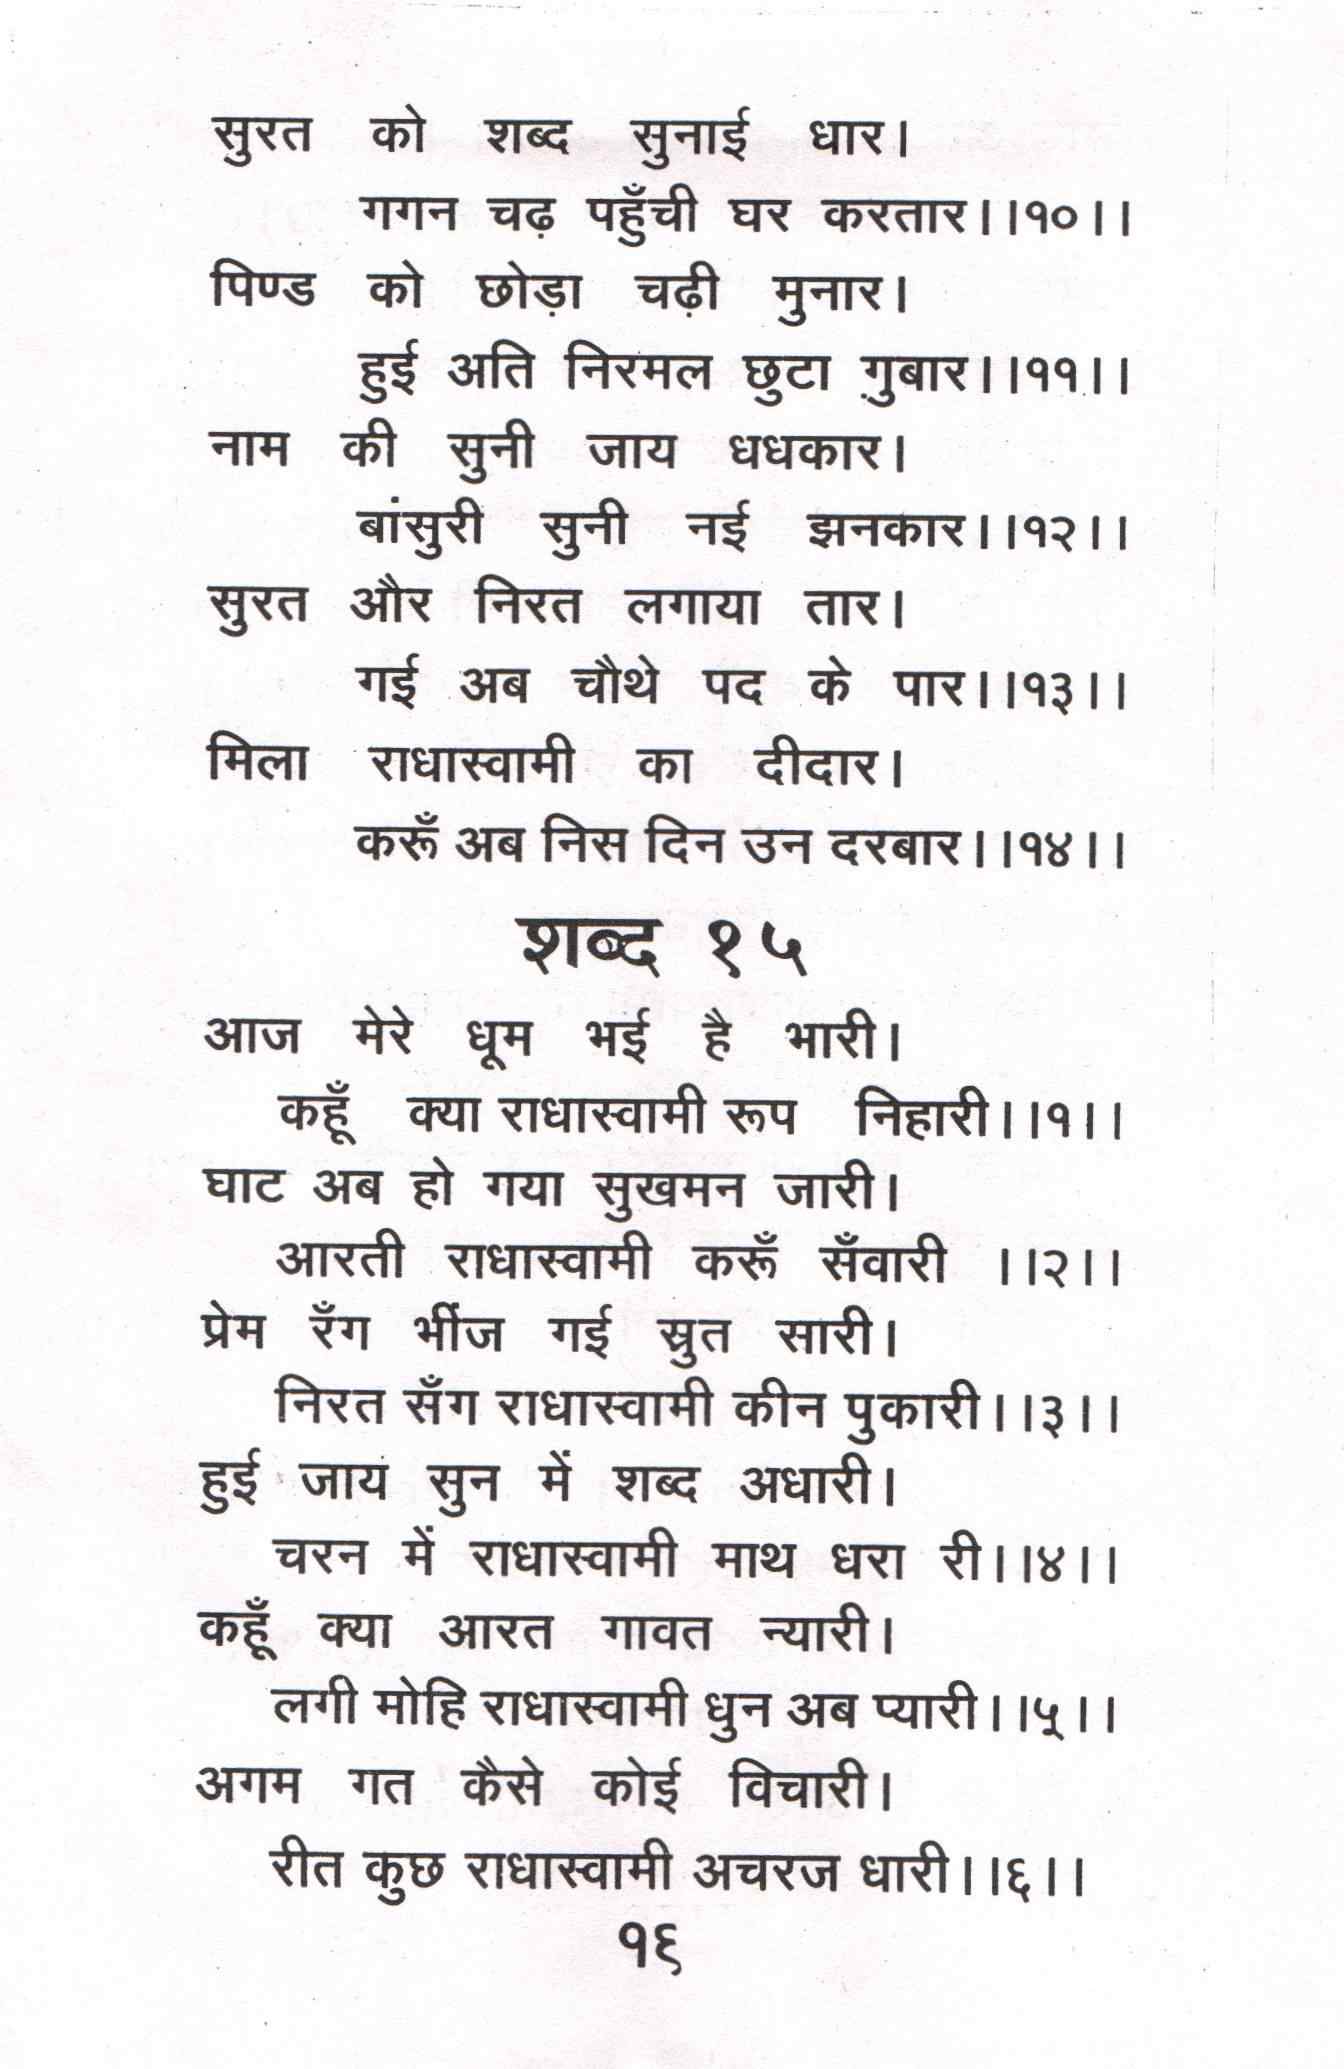 सुरत को शब्द सुनाई धार।
गगन चढ़ पहुँची घर करतार।।१०।।
पिण्ड को छोड़ा चढ़ी मुनार।
हुई अति निरमल छुटा ग़ुबार।।११।।
नाम की सुनी जाय धधकार।
बांसुरी सुनी नई झनकार।।१२।।
सुरत और निरत लगाया तार।
गई अब चौथे पद के पार।।१३।।
मिला राधास्वामी का दीदार।
करूँ अब निस दिन उन दरबार।।१४।।
शब्द १५
आज मेरे धूम भई है भारी।
कहूँ क्या राधास्वामी रूप निहारी।।१।।
घाट अब हो गया सुखमन जारी।
आरती राधास्वामी करूँ सँवारी ।।२।।
प्रेम रँग भींज गई स्रुत सारी।
निरत सँग राधास्वामी कीन पुकारी।।३।।
हुई जाय सुन में शब्द अधारी।
चरन में राधास्वामी माथ धरा री।।४।।
कहूँ क्या आरत गावत न्यारी।
लगी मोहि राधास्वामी धुन अब प्यारी।।५।।
अगम गत कैसे कोई विचारी।
रीत कुछ राधास्वामी अचरज धारी।।६।।
१६